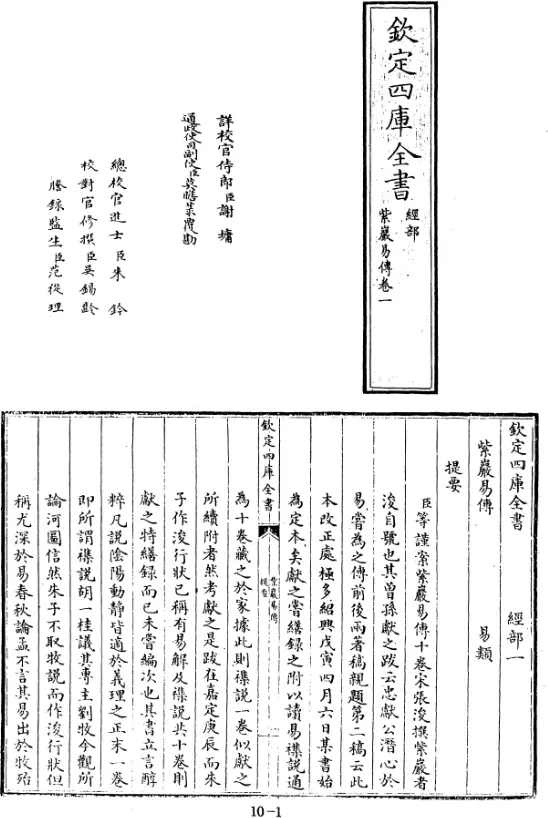 欽定四庫全書
經部
紫巖易傳卷一
詳校官侍郎臣謝墉
通政使司副使臣莫瞻菉覆勘
總校官進士臣朱鈐
校對官修撰臣吳錫齡
謄錄監生臣范從理
欽定四庫全書 經部一
紫巖易傳 易類
提要
臣等謹案紫巖易傳十卷宋張浚撰紫巖者
浚自號也其曾孫獻之跋云忠獻公潛心於
易嘗為之傳前後兩著稿親題第二稿云此
本改正處極多紹興戊寅四月六日某書始
為定本矣獻之嘗繕録之附以讀易襍説通
欽定四庫全書
紫巖易傳
提要
一
為十卷藏之於家據此則襍說一卷似獻之
所續附者然考獻之是跋在嘉定庚辰而朱
子作浚行狀已稱有易解及襍說共十卷則
獻之特繕録而已未嘗編次也其書立言醇
粹凡說陰陽動静皆適於義理之正末一卷
即所謂襍說胡一桂議其専主劉牧今觀所
論河圖信然朱子不取牧說而作浚行狀但
稱尤深於易春秋論孟不言其易出於牧殆
10-1